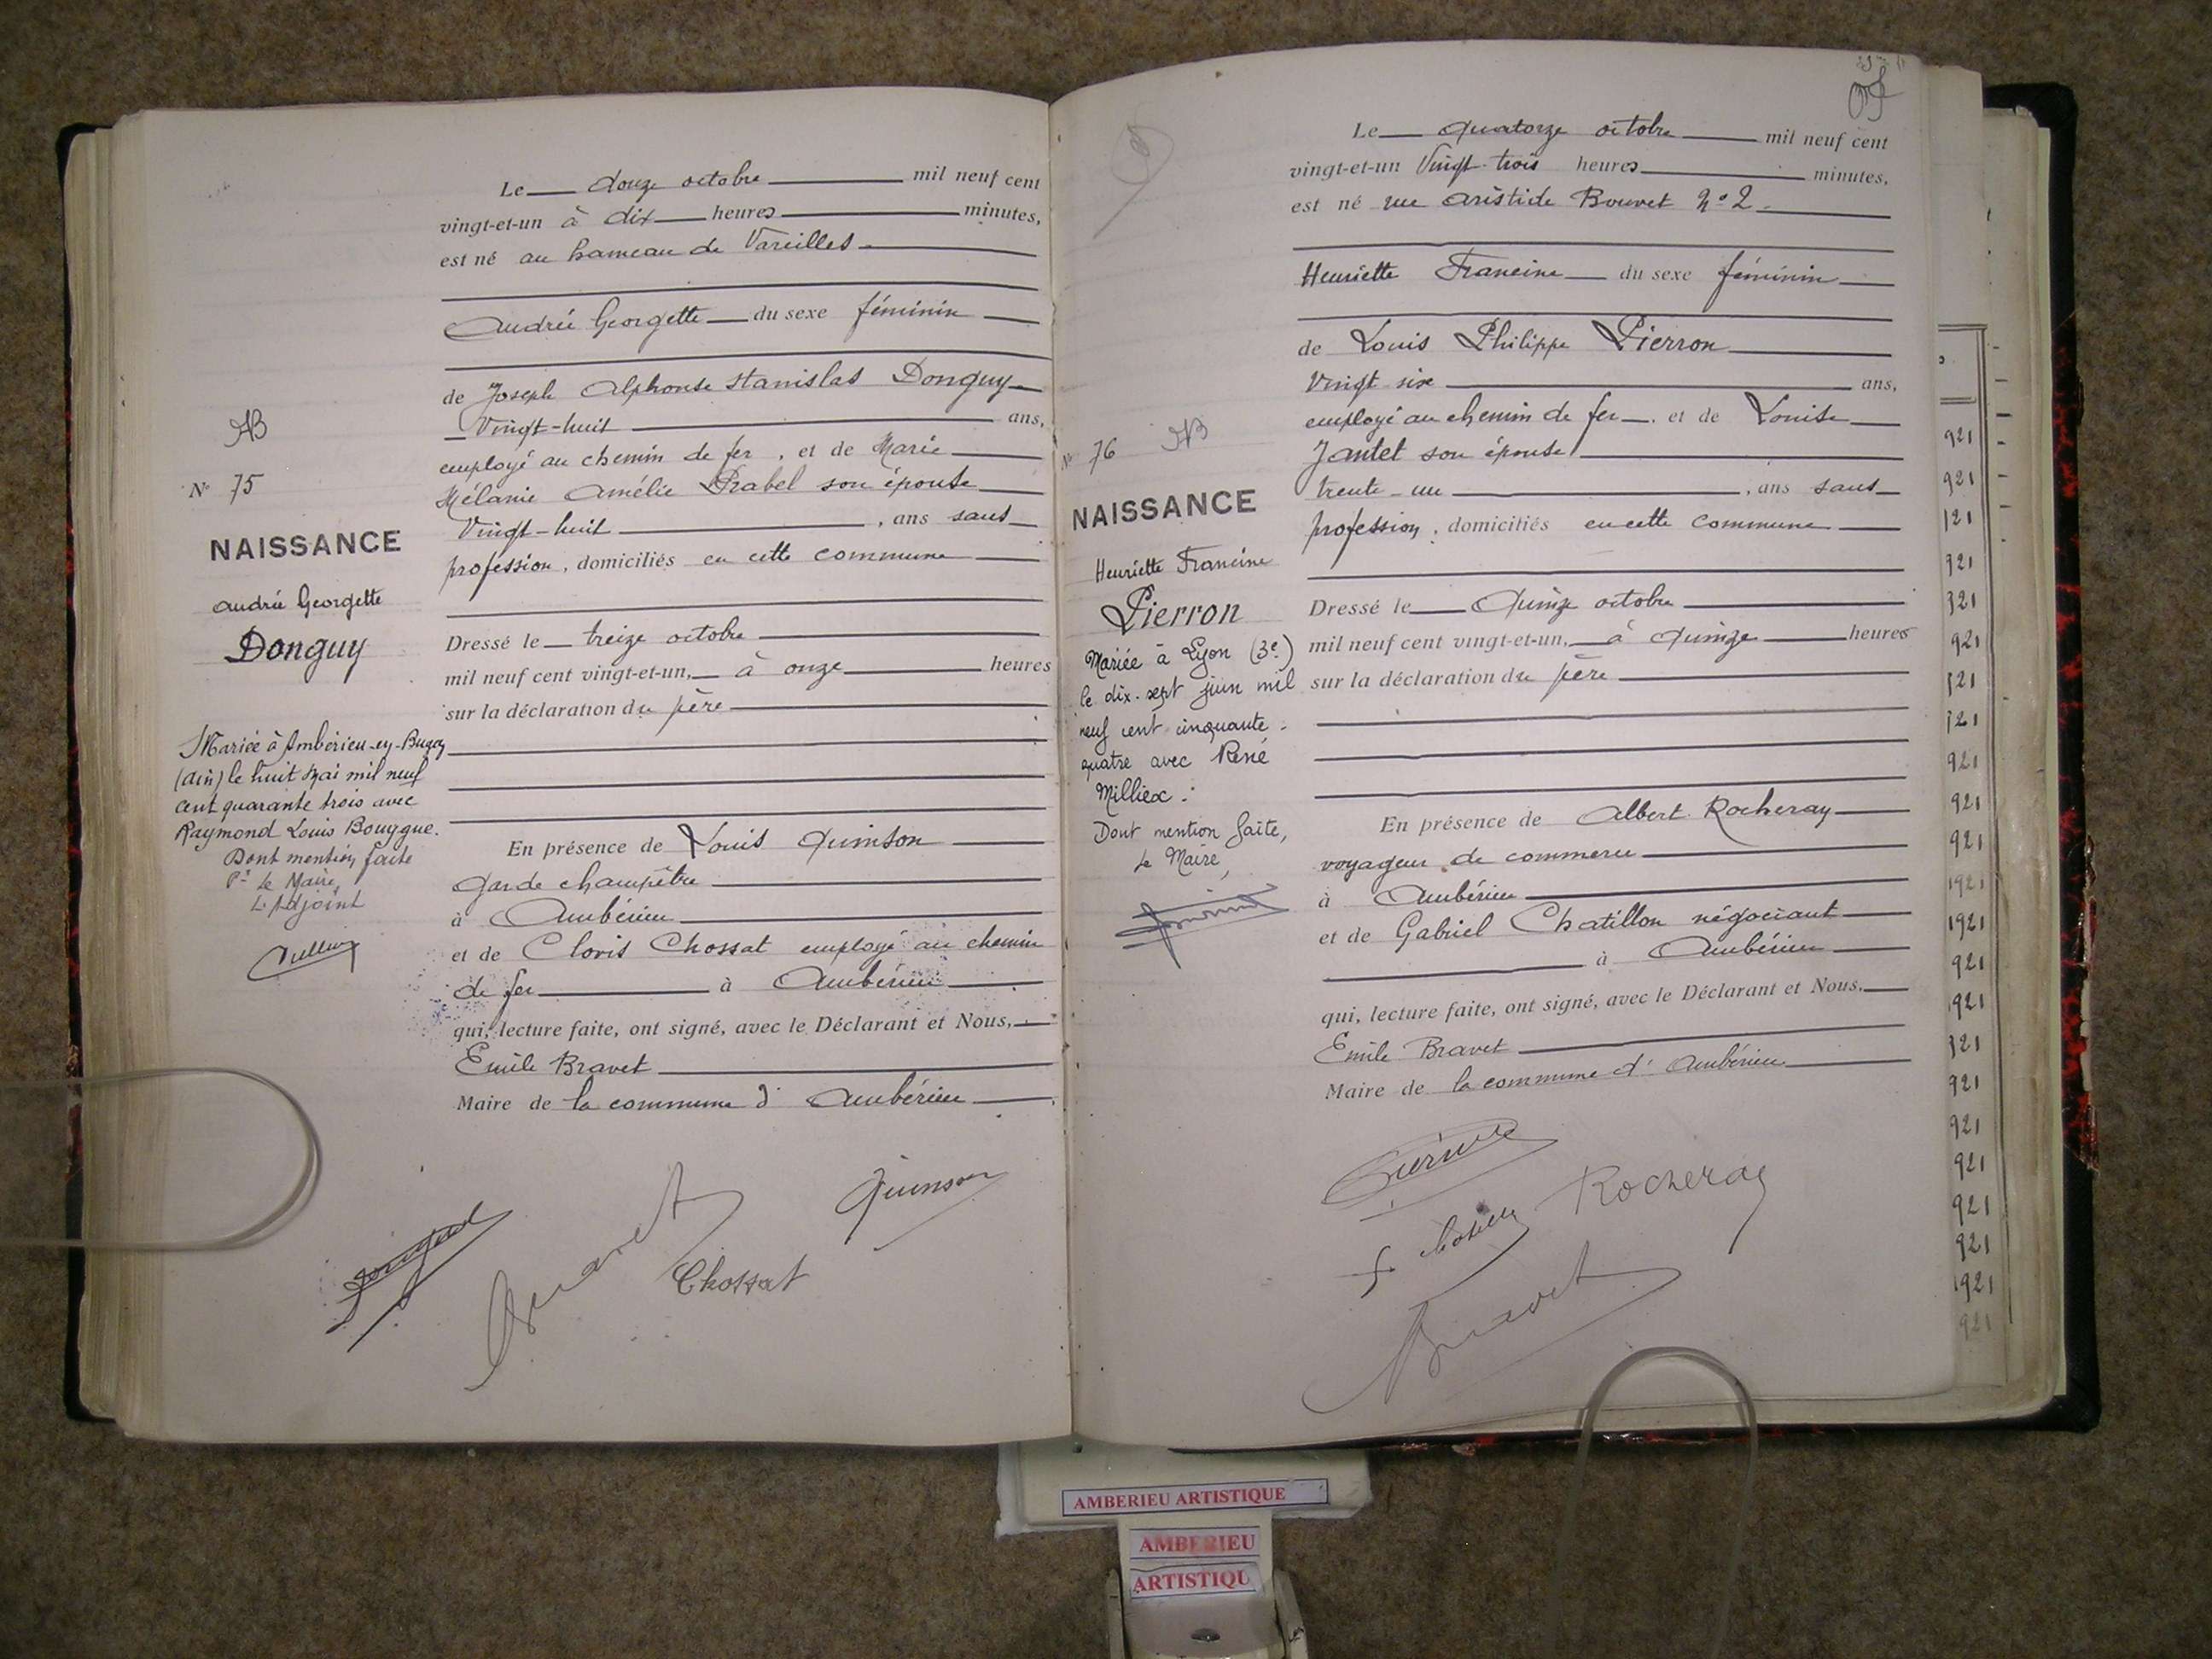 AB
N° 75
NAISSANCE
Andrée Georgette
Donguy
Mariée à Ambérieu-en-Bugey
(Ain) le huit Mai mil neuf
cent quarante trois avec
Raymond Louis Bouygue.
Dont mention faite
Pr Le Maire,
L'Adjoint
Le douze octobre mil neuf cent
vingt-et-un à dix heures minutes,
est né au hameau de Vareilles
Andrée Georgette du sexe féminin
de Joseph Alphonse Stanislas Donguy
Vingt-huit ans,
employé au chemin de fer, et de Marie
Mélanie Amélie Prabel son épouse
Vingt-huit, ans sans
profession, domiciliés en cette commune
Dressé le treize octobre
mil neuf cent vingt-et-un, à onze heures
sur la déclaration du père
En présence de Louis Quinson
Garde champêtre
à Ambérieu
et de Clovis Chossat employé au chemin
de fer à Ambérieu
qui, lecture faite, ont signé, avec le Déclarant et Nous,
Emile Bravet
Maire de la commune d'Ambérieu
Quinson
Bravet
Chossat
N° 76 AB
NAISSANCE
Henriette Francine
Pierron
Mariée à Lyon (3e)
le dix-sept juin mil
neuf cent cinquante-
quatre avec René
Milliex.
Dont mention faite,
Le Maire,
Le quatorze octobre mil neuf cent
vingt-et-un Vingt-trois heures minutes,
est né rue Aristide Bouvet n° 2
Henriette Francine du sexe féminin
de Louis Philippe Pierron
Vingt six ans,
employé au chemin de fer, et de Louise
Jantet son épouse
trente-un, ans sans
profession, domiciliés en cette commune
Dressé le Quinze octobre
mil neuf cent vingt-et-un, à quinze heures
sur la déclaration du père
En présence de Albert Rocheray
voyageur de commerce
à Ambérieu
et de Gabriel Chatillon négociant
à Ambérieu
qui, lecture faite, ont signé, avec le Déclarant et Nous,
Emile Bravet
Maire de la commune d'Ambérieu
Rocheray
Bravet
921
921
121
921
921
921
921
121
921
921
921
1921
1921
921
1921
921
921
921
921
921
921
1921
921
AMBERIEU ARTISTIQUE
AMBERIEU
ARTISTIQU